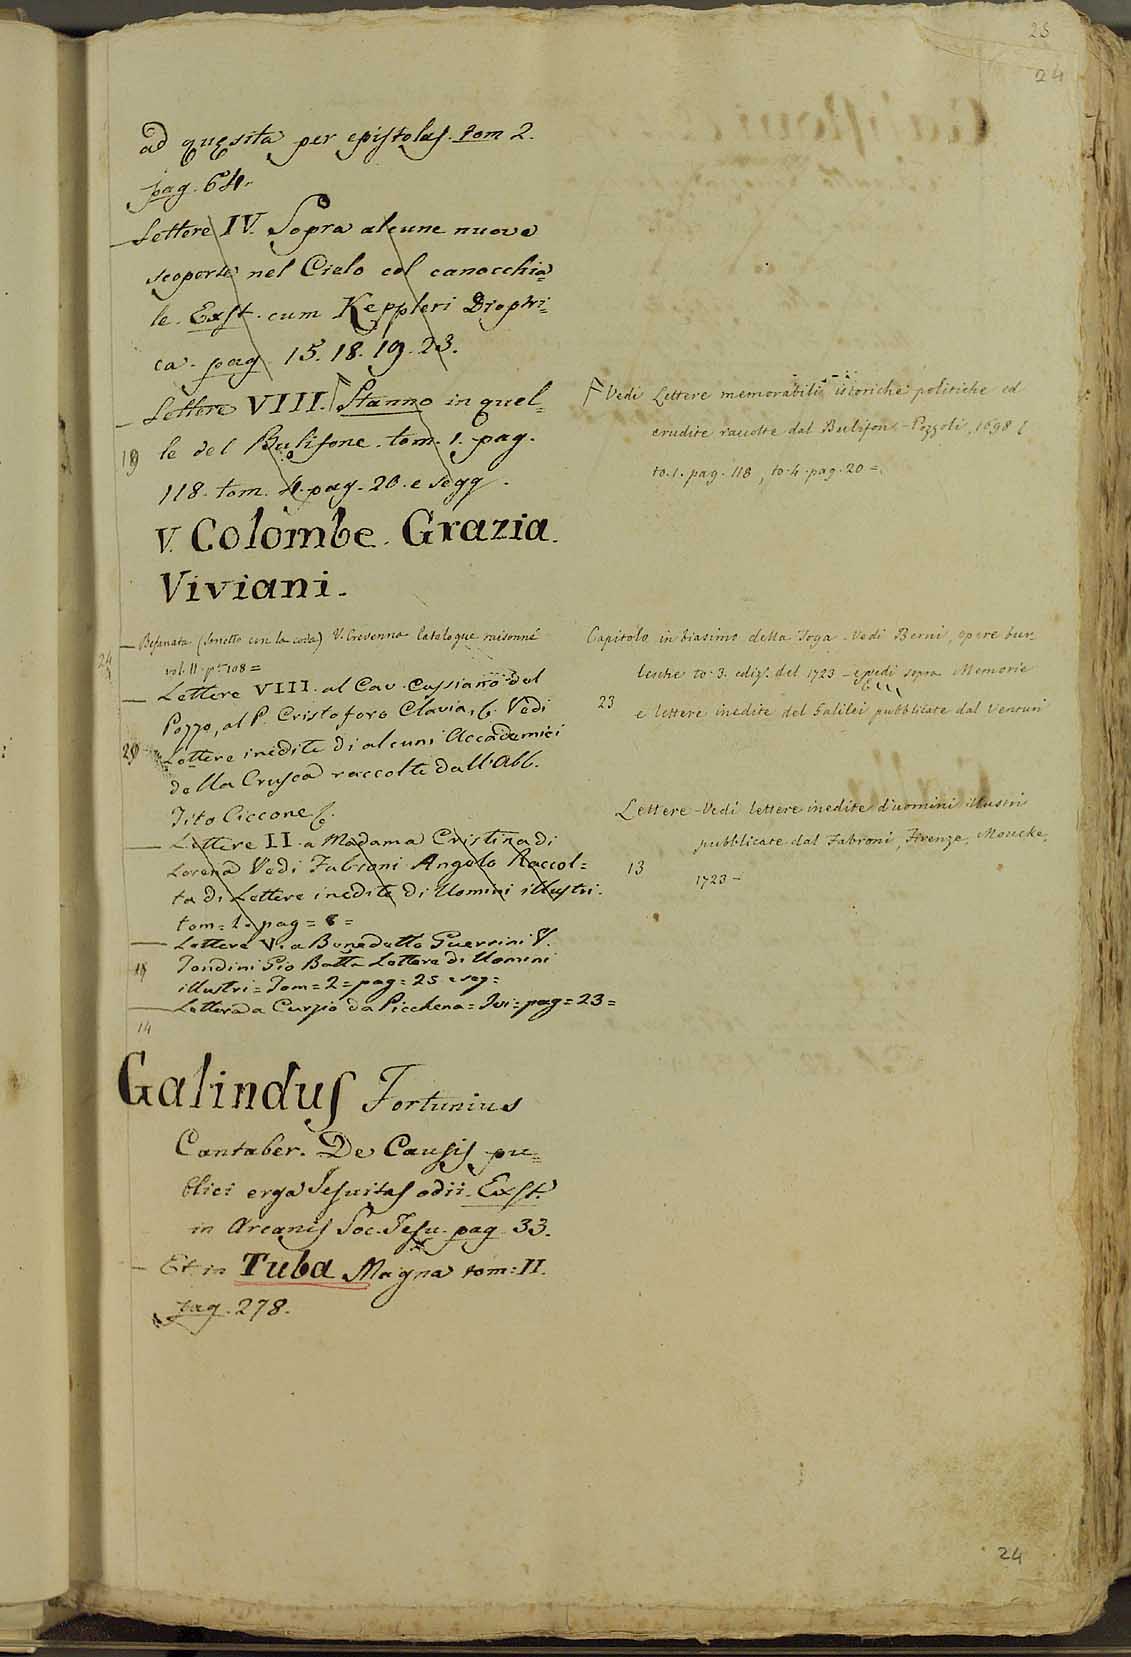 25
24
ad quęsita per epistolas. tom 2.
pag. 64.
Lettere IV. Sopra alcune nuove
scoperte nel Cielo col canocchia=
le. Exst. cum Keppleri Dioptri=
ca. pag. 15. 18. 19. 23.
Lettere VIII. Stanno in quel=
19 le del Bulifone. tom. 1. pag.
118. tom. 4. pag. 20. e segg.
V. Colombe. Grazia.
Viviani.
Befanata (Sonetto con la coda) V. Crevenna Catalogue raisonné
24
vol. II. p. 108 =
Lettere VIII. al Cav. Cassiano del
Pozzo, al P. Cristoforo Clavia, &. Vedi
20 Lettere inedite di alcuni Accademici
della Crusca raccolte dall'Abb.
Tito Ciccone &.
Lettere II. a Madama Cristina di
Lorena Vedi Fabroni Angelo Raccol=
ta di Lettere inedite di Uomini illustri.
tom = 1. pag = 8 =
Lettere V. a Benedetto Guerrini V.
18 Tondini Gio Batta Lettere di Uomini
illustri = Tom = 2 = pag = 25 e seg =
Lettera a Curzio da Picchena = Ivi = pag = 23 =
14
Galindus Fortunius
Cantaber. De Causis pu=
blici erga Jesuitas odii. Exst.
in Arcanis Soc. Jesu. pag. 33.
Et in Tuba Magna tom: II.
pag. 278.
Vedi Lettere memorabili istoriche politiche ed
erudite raccolte dal Bulifon - Pozzoli, 1698
to. 1. pag. 118, to. 4. pag. 20 =
Capitolo in biasimo della Toga. Vedi Berni, opere bur
lesche to. 3. ediz. del 1723 - e vedi sopra Memorie
23 e lettere inedite del Galilei pubblicate dal Venturi
Lettere - Vedi lettere inedite d'uomini illustri
pubblicate dal Fabroni, Firenze, Moucke,
13 1723 -
24